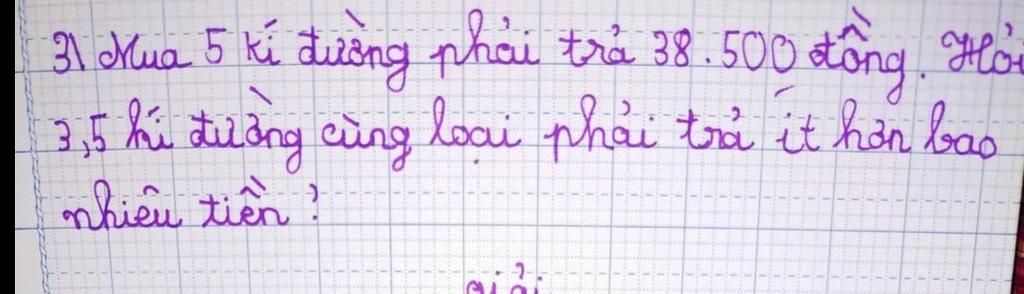 3\ Mua 5 kí đường phải trả 38.500 đồng. Hỏi
3,5 kí đường cùng loại phải trả ít hơn bao
nhiêu tiền?
giải